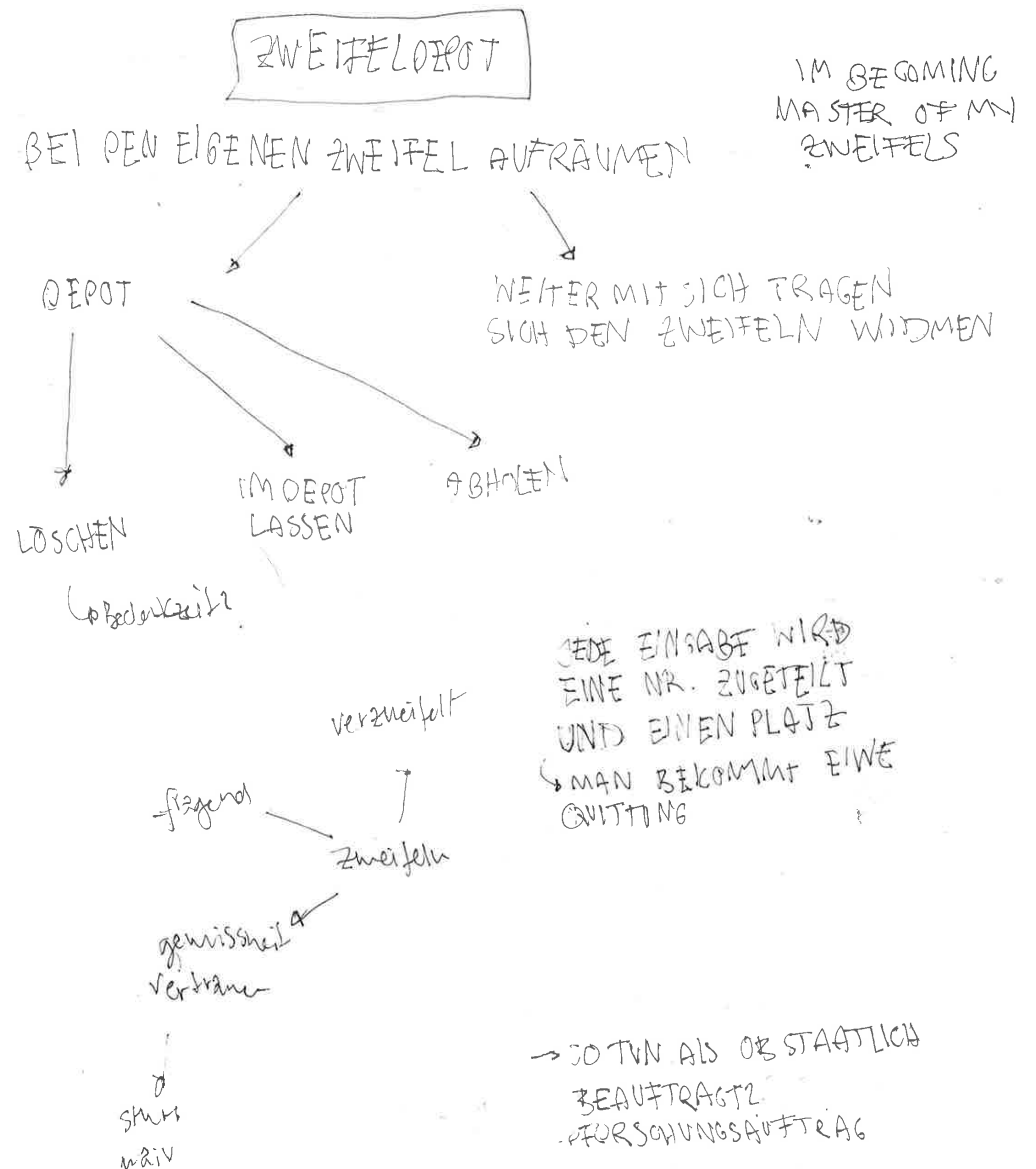 ZWEIFELDEPOT
IM BECOMING
MASTER OF MY
ZWEIFELS
BEI DEN EIGENEN ZWEIFEL AUFRÄUMEN
DEPOT
WEITER MIT SICH TRAGEN
SICH DEN ZWEIFELN WIDMEN
LÖSCHEN
IM DEPOT
LASSEN
ABHOLEN
Bedenkzeit?
JEDE EINGABE WIRD
EINE NR. ZUGETEILT
UND EINEN PLATZ
MAN BEKOMMT EINE
QUITTUNG
verzweifelt
fragend
zweifeln
gewissheit
vertrauen
stur
naiv
→ SO TUN ALS OB STAATLICH
BEAUFTRAGT?
FORSCHUNGSAUFTRAG